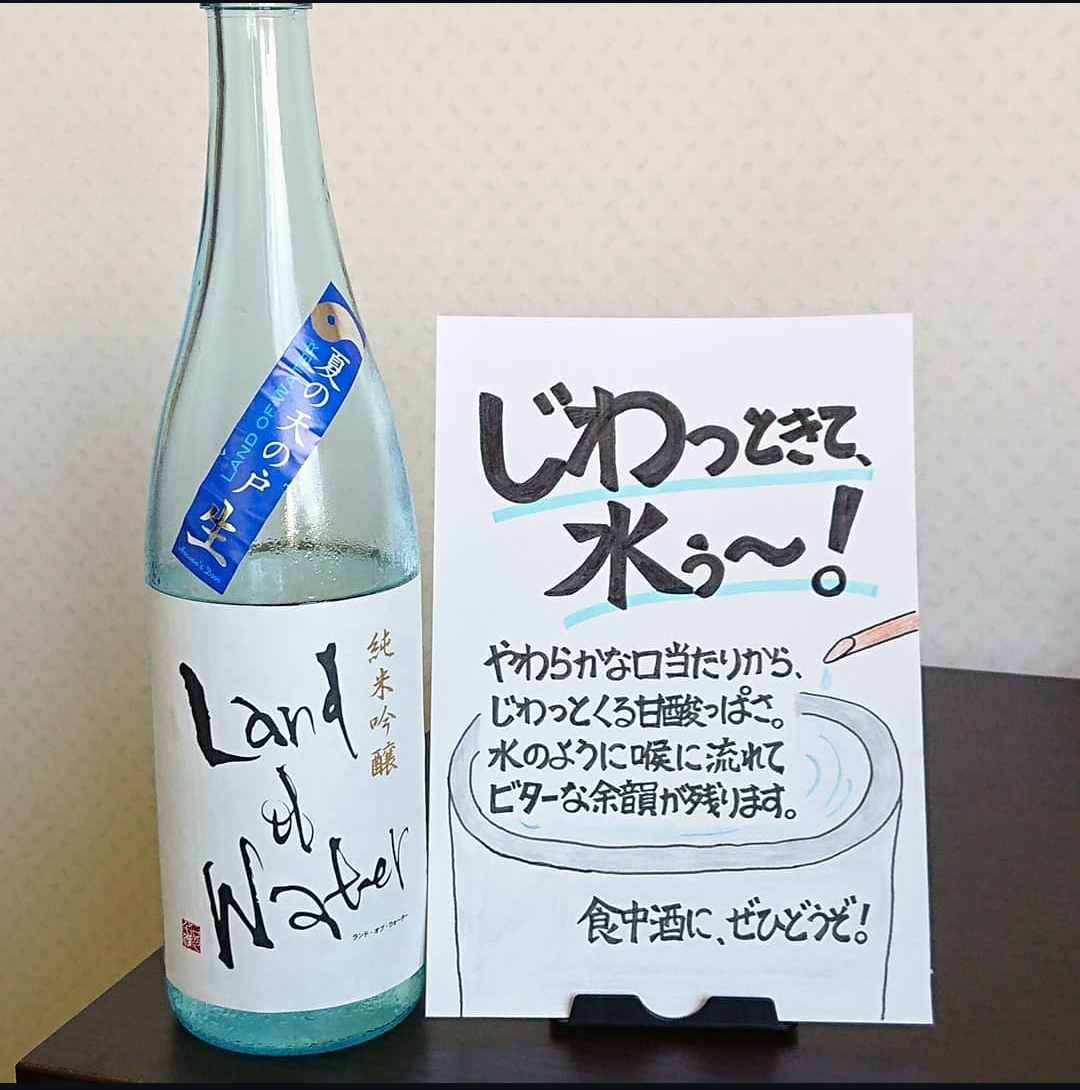 夏の天の戸 生
LAND OF WATER
純米吟醸
Land
of
Water
ランド・オブ・ウォーター
じわっときて、
水ぅ〜！
やわらかな口当たりから、
じわっとくる甘酸っぱさ。
水のように喉に流れて
ビターな余韻が残ります。
食中酒に、ぜひどうぞ！